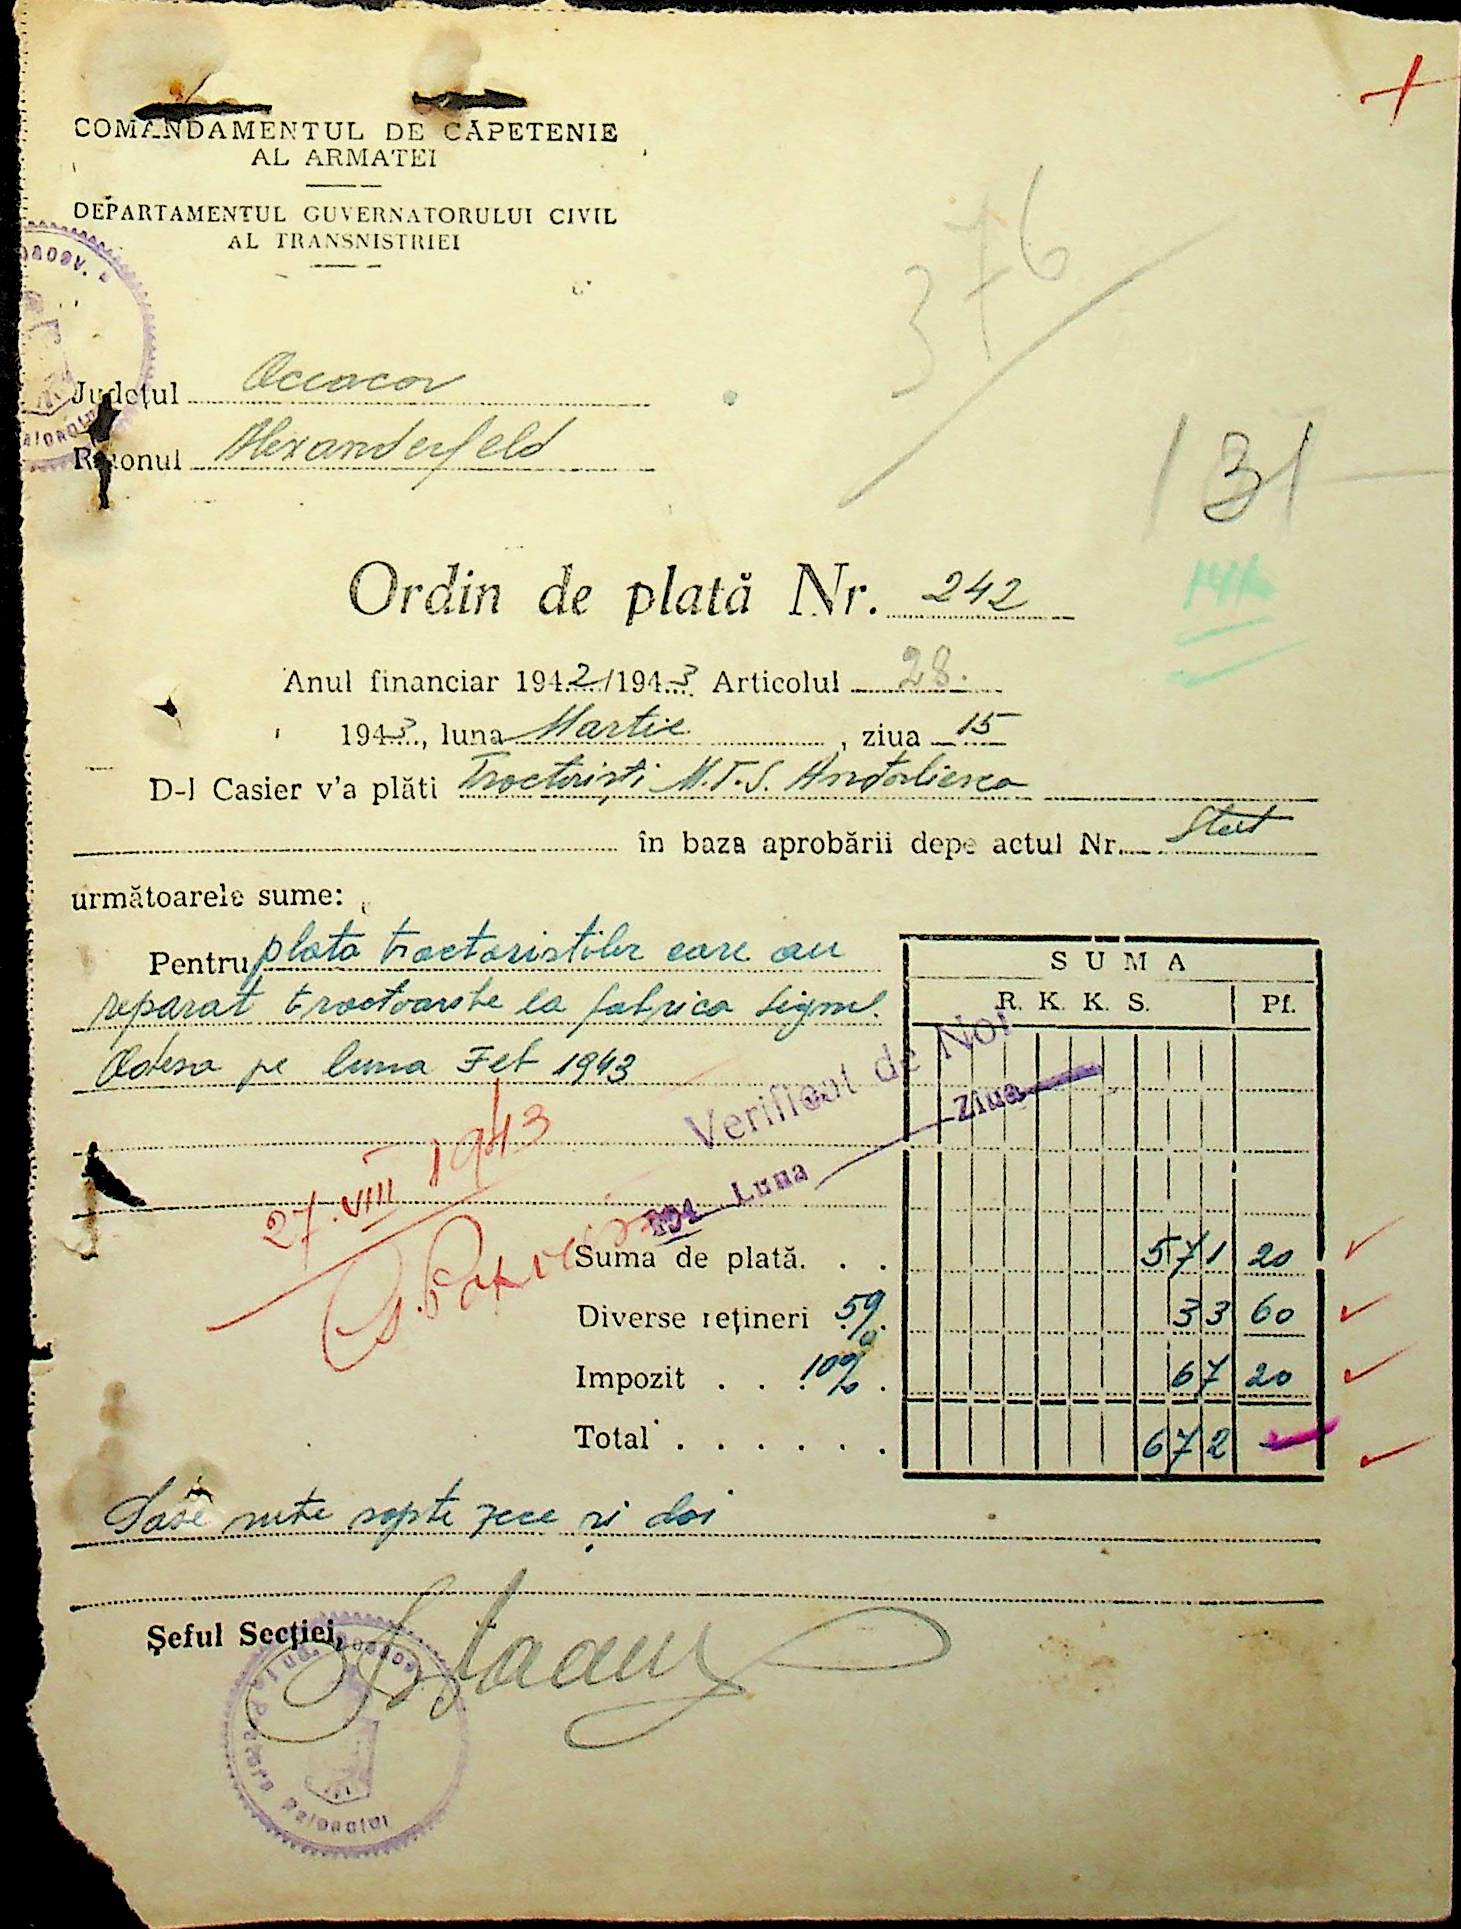 COMANDAMENTUL DE CĂPETENIE
AL ARMATEI
DEPARTAMENTUL GUVERNATORULUI CIVIL
AL TRANSNISTRIEI
376
Județul Oceacov
Raionul Alexanderfeld
131
Ordin de plată Nr. 242
Anul financiar 1942/1943 Articolul 28.
1943, luna Martie, ziua 15
D-l Casier v'a plăti Tractoriști M.T.S.
în baza aprobării depe actul Nr. Stat
următoarele sume:
Pentru plata tractoristilor care au
reparat tractoarele la fabrica
Odesa pe luna Feb 1943
SUMA
R. K. K. S. Pf.
Verificat de Noi
194 Luna Ziua
27.VIII 1943
Suma de plată. . . 571 20
Diverse rețineri 5% 33 60
Impozit . . 10% . 67 20
Total . . . . . . 672 —
Sase sute sapte zece si doi
Șeful Secției,